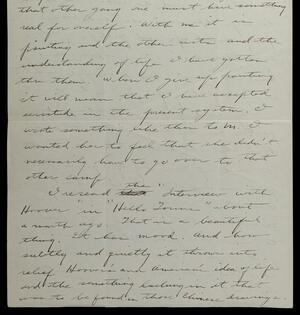 that other gang one must have something
real for oneself. With me it is
painting and the other arts and the
understanding of life I have gotten
thru them. When I give up painting
it will mean that I have accepted
servitude in the present system. I
wrote something like then to M. I
wanted her to feel that she didn't
necessarily have to go over to that
other camp.
I reread the "Interview with
Hoover" in "Hello Towns" about
a month ago. That is a beautiful
thing. It has mood. And how
subtly and quietly it throws into
relief Hoover's and American idea of life
and the something lacking in it that
was to be found in those Chinese drawings.